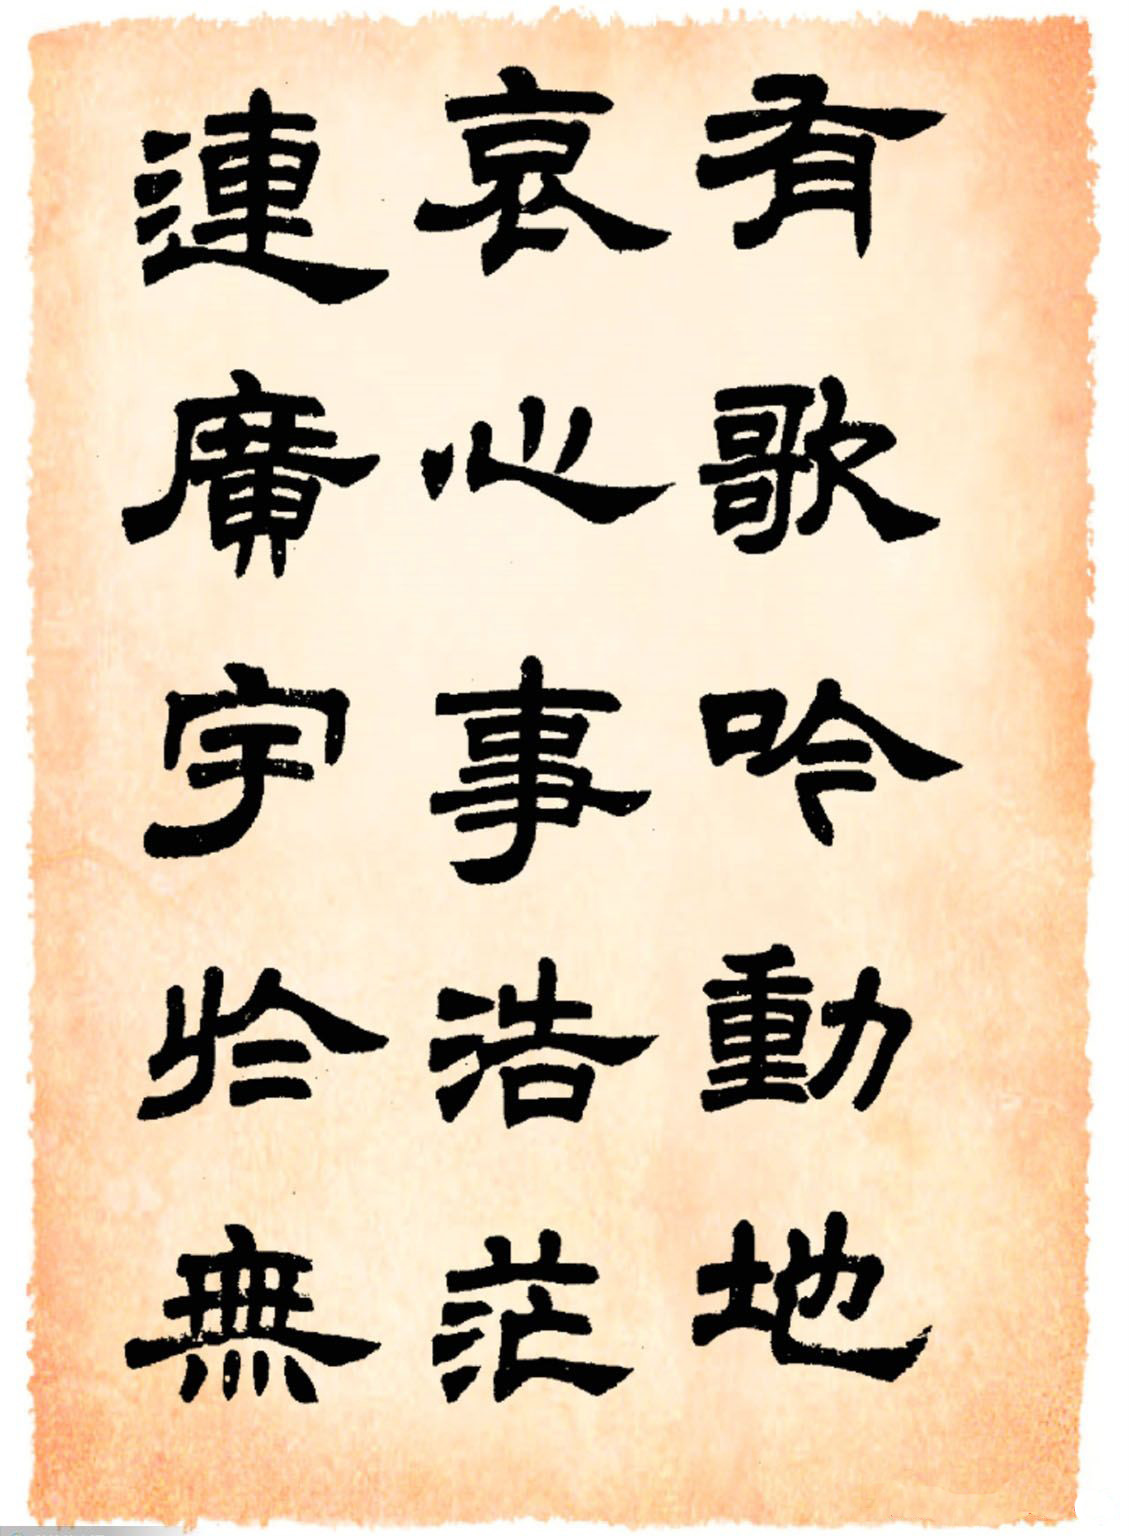 有歌吟動地
哀心事浩茫
連廣宇於無